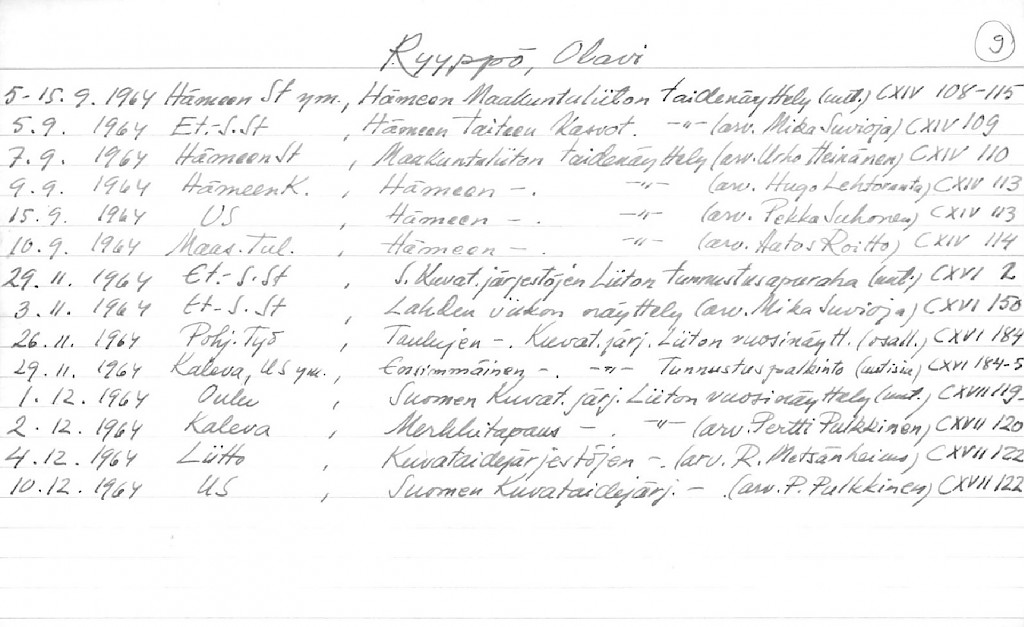 9
Ryyppö, Olavi
5-15.9.1964 Hämeen St ym., Hämeen Maakuntaliiton taidenäyttely (uut.) CXIV 108-115
5.9. 1964 Et.-S.St , Hämeen taiteen kasvot. -"- (arv. Mika Suvioja) CXIV 109
7.9. 1964 Hämeen St , Maakuntaliiton taidenäyttely (arv. Urho Heinänen) CXIV 110
9.9. 1964 Hämeen K. , Hämeen -. -"- (arv. Hugo Lehtoranta) CXIV 113
15.9. 1964 US , Hämeen -. -"- (arv. Pekka Suhonen) CXIV 113
10.9. 1964 Maas.Tul. , Hämeen - -"- (arv. Autos Roitto) CXIV 114
29.11. 1964 Et.-S.St , S. Kuvat.järjestöjen Liiton tunnustusapuraha (uut.) CXVI 2
3.11. 1964 Et-S.St , Lahden viikon näyttely (arv. Mika Suvioja) CXVI 150
26.11. 1964 Pohj.Työ , Taulujen -. Kuvat.järj. Liiton vuosinäytt. (osall.) CXVI 184
29.11 1964 Kaleva, US ym., Ensimmäinen -. -"- Tunnustuspalkinto (uutisia) CXVI 184-5
1.12. 1964 Oulu , Suomen Kuvat.järj. Liiton vuosinäyttely (uut.) CXVII 119
2.12. 1964 Kaleva , Merkkitapaus -. -"- (arv. Pertti Pulkkinen) CXVII 120
4.12. 1964 Liitto , Kuvataidejärjestöjen -. (arv. R. Metsänheimo) CXVII 122
10.12. 1964 US , Suomen Kuvataidejärj. - (arv. P. Pulkkinen) CXVII 122